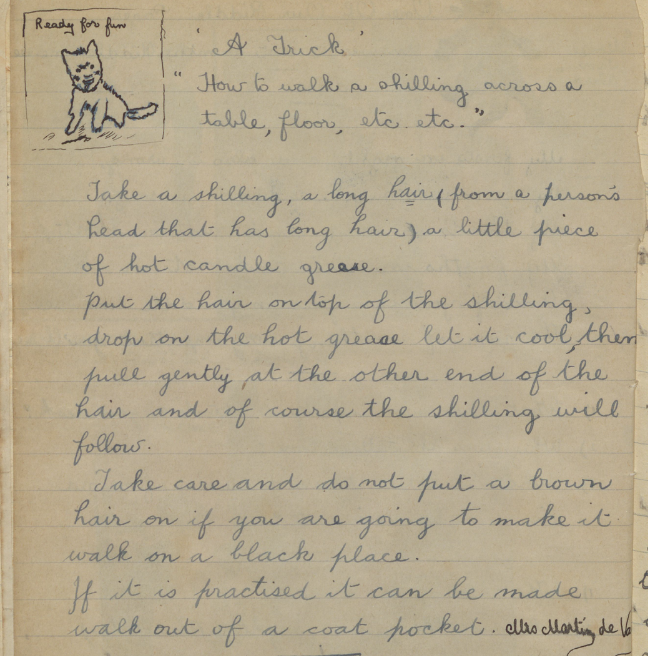 Ready for fun
'A Trick'
"How to walk a shilling across a
table, floor, etc. etc."
Take a shilling, a long hair (from a person's
head that has long hair) a little piece
of hot candle grease.
Put the hair on top of the shilling,
drop on the hot grease let it cool, then
pull gently at the other end of the
hair and of course the shilling will
follow.
Take care and do not put a brown
hair on if you are going to make it
walk on a black place.
If it is practised it can be made
walk out of a coat pocket. Mrs Martin de